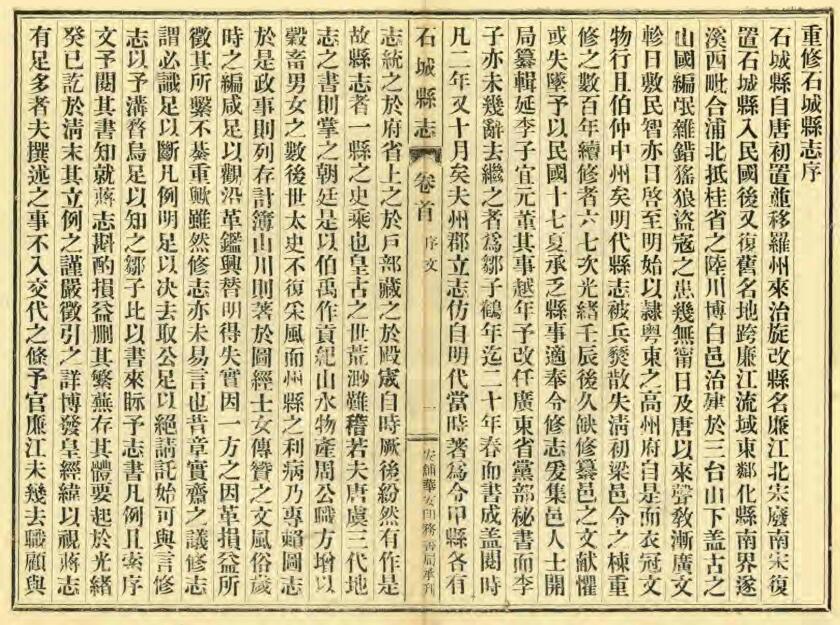 重修石城縣志序
石城縣自唐初置並移羅州來治旋改縣名廉江北宋廢南宋復
置石城縣入民國後又復舊名地跨廉江流域東鄰化縣南界遂
溪西毗合浦北抵桂省之陸川博白邑治建於三台山下蓋古之
山國編氓雜錯猺狼盜寇之患幾無甯日及唐以來聲教漸廣文
軫日敷民智亦日啓至明始以隸粵東之高州府自是而衣冠文
物行且伯仲中州矣明代縣志被兵燹散失清初梁邑令之棟重
修之數百年續修者六七次光緒壬辰後久缺修纂邑之文獻懼
或失墜予以民國十七夏承乏縣事適奉令修志爰集邑人士開
局纂輯延李子宜元董其事越年予改任廣東省黨部秘書而李
子亦未幾辭去繼之者爲鄒子鶴年迄二十年春而書成蓋閱時
凡二年又十月矣夫州郡立志仿自明代當時著爲令甲縣各有
石城縣志 卷首 序文 一 安鋪華安印務書局承刊
志統之於府省上之於戶部藏之於殿宬自時厥後紛然有作是
故縣志者一縣之史乘也皇古之世荒渺難稽若夫唐虞三代地
志之書則掌之朝廷是以伯禹作貢紀山水物產周公職方增以
穀畜男女之數後世太史不復采風而州縣之利病乃專賴圖志
於是政事則列存計簿山川則著於圖經士女傳贊之文風俗歲
時之編咸足以觀沿革鑑興替明得失實因一方之因革損益所
徵其所繫不綦重歟雖然修志亦未易言也昔章實齋之議修志
謂必識足以斷凡例明足以决去取公足以絕請託始可與言修
志以予溝瞀烏足以知之鄒子比以書來眎予志書凡例且索序
文予閱其書知就蔣志斟酌損益刪其繁蕪存其體要起於光緒
癸巳訖於清末其立例之謹嚴徵引之詳博發皇經緯以視蔣志
有足多者夫撰述之事不入交代之條予官廉江未幾去職顧與